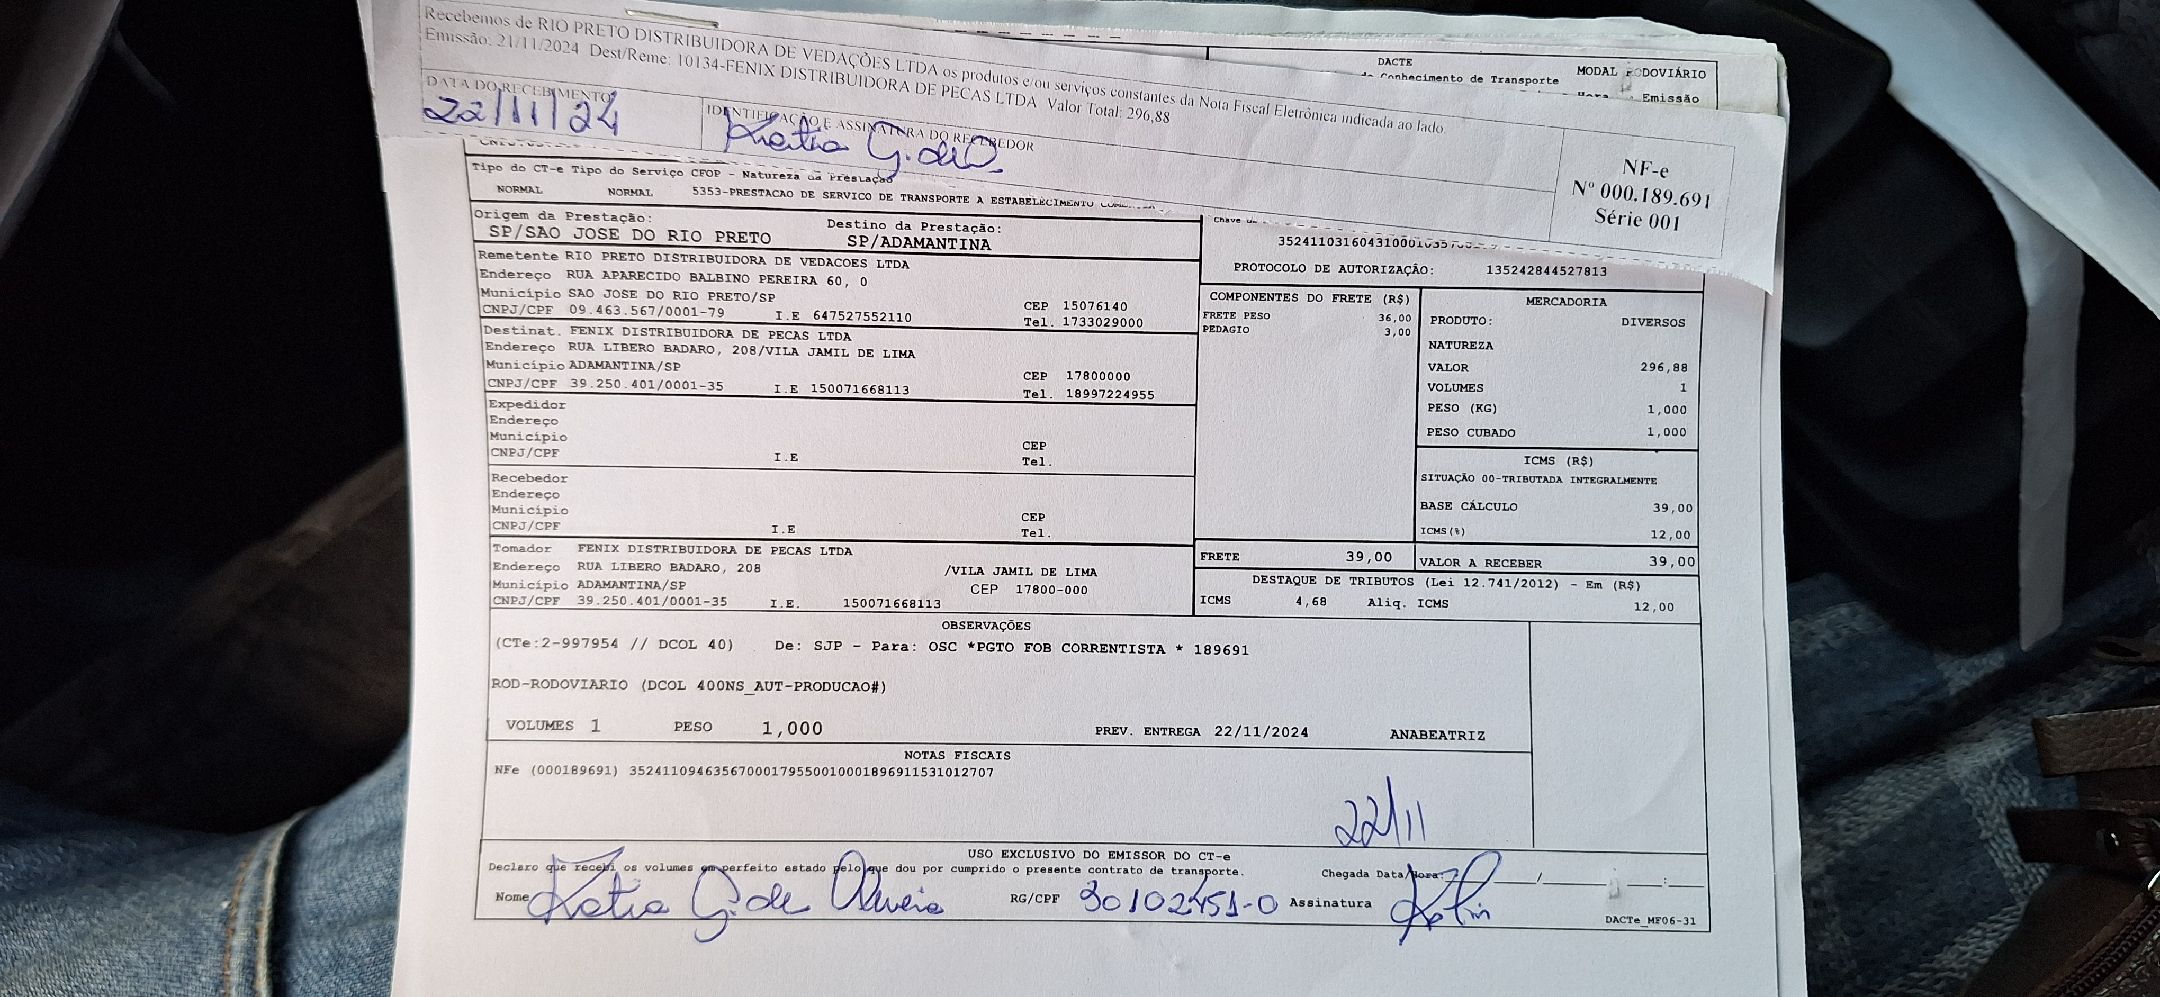 Recebemos de RIO PRETO DISTRIBUIDORA DE VEDAÇÕES LTDA os produtos e/ou serviços constantes da Nota Fiscal Eletrônica indicada ao lado.
Emissão: 21/11/2024 Dest/Reme: 10134-FENIX DISTRIBUIDORA DE PECAS LTDA Valor Total: 296,88
DATA DO RECEBIMENTO
22/11/24
IDENTIFICAÇÃO E ASSINATURA DO RECEBEDOR
Katia G. de O.
NF-e
Nº 000.189.691
Série 001
DACTE
Conhecimento de Transporte
MODAL RODOVIÁRIO
Emissão
Tipo do CT-e Tipo do Serviço CFOP - Natureza da Prestação
NORMAL NORMAL 5353-PRESTACAO DE SERVICO DE TRANSPORTE A ESTABELECIMENTO
Origem da Prestação: Destino da Prestação:
SP/SAO JOSE DO RIO PRETO SP/ADAMANTINA
Remetente RIO PRETO DISTRIBUIDORA DE VEDACOES LTDA
Endereço RUA APARECIDO BALBINO PEREIRA 60, 0
Município SAO JOSE DO RIO PRETO/SP CEP 15076140
CNPJ/CPF 09.463.567/0001-79 I.E 647527552110 Tel. 1733029000
Destinat. FENIX DISTRIBUIDORA DE PECAS LTDA
Endereço RUA LIBERO BADARO, 208/VILA JAMIL DE LIMA
Município ADAMANTINA/SP CEP 17800000
CNPJ/CPF 39.250.401/0001-35 I.E 150071668113 Tel. 18997224955
Expedidor
Endereço
Município CEP
CNPJ/CPF I.E Tel.
Recebedor
Endereço
Município CEP
CNPJ/CPF I.E Tel.
Tomador FENIX DISTRIBUIDORA DE PECAS LTDA
Endereço RUA LIBERO BADARO, 208 /VILA JAMIL DE LIMA
Município ADAMANTINA/SP CEP 17800-000
CNPJ/CPF 39.250.401/0001-35 I.E. 150071668113
Chave
PROTOCOLO DE AUTORIZAÇÃO: 135242844527813
COMPONENTES DO FRETE (R$)
FRETE PESO 36,00
PEDAGIO 3,00
MERCADORIA
PRODUTO: DIVERSOS
NATUREZA
VALOR 296,88
VOLUMES 1
PESO (KG) 1,000
PESO CUBADO 1,000
ICMS (R$)
SITUAÇÃO 00-TRIBUTADA INTEGRALMENTE
BASE CÁLCULO 39,00
ICMS(%) 12,00
FRETE 39,00 VALOR A RECEBER 39,00
DESTAQUE DE TRIBUTOS (Lei 12.741/2012) - Em (R$)
ICMS 4,68 Aliq. ICMS 12,00
OBSERVAÇÕES
(CTe:2-997954 // DCOL 40) De: SJP - Para: OSC *PGTO FOB CORRENTISTA * 189691
ROD-RODOVIARIO (DCOL 400NS_AUT-PRODUCAO#)
VOLUMES 1 PESO 1,000 PREV. ENTREGA 22/11/2024 ANABEATRIZ
NOTAS FISCAIS
NFe (000189691) 35241109463567000179550010001896911531012707
22/11
USO EXCLUSIVO DO EMISSOR DO CT-e
Declaro que recebi os volumes em perfeito estado pelo que dou por cumprido o presente contrato de transporte. Chegada Data/Hora:
Nome Katia G. de Oliveira RG/CPF 30102451-0 Assinatura Katia
DACTe_MF06-31